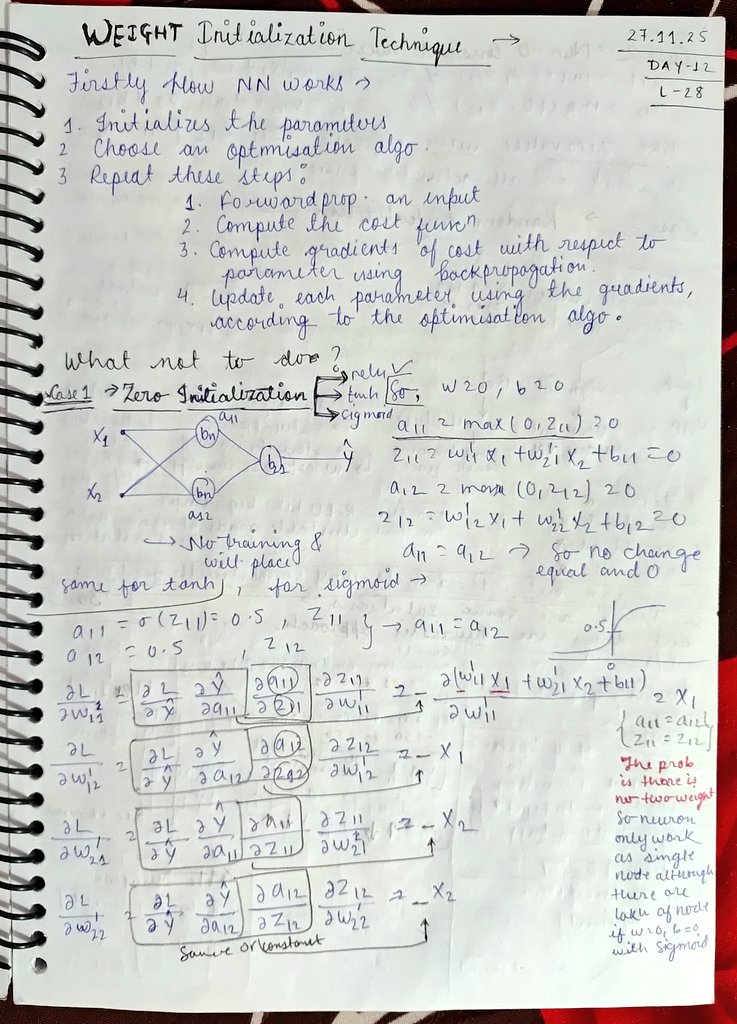 WEIGHT Initialization Technique →
27.11.25
DAY-12
L-28
Firstly How NN works →
1. Initializes the parameters
2 Choose an optmisation algo.
3 Repeat these steps:
1. Forwardprop. an input
2. Compute the cost funcⁿ
3. Compute gradients of cost with respect to
parameter using backpropagation.
4. Update each parameter using the gradients,
according to the optimisation algo.
What not to do?
Case 1 → Zero Initialization
→ relu ✓
→ tanh
→ sigmoid
So, w=0, b=0
X₁
X₂
a₁₁
b₁₁
a₁₂
Ŷ
a₁₁ = max(0, z₁₁) = 0
z₁₁ = w¹₁₁ x₁ + w¹₂₁ x₂ + b₁₁ = 0
a₁₂ = max(0, z₁₂) = 0
z₁₂ = w¹₁₂ x₁ + w¹₂₂ x₂ + b₁₂ = 0
→ No training &
will place
a₁₁ = a₁₂ → So no change
equal and 0
same for tanh, for sigmoid →
a₁₁ = σ(z₁₁) = 0.5, z₁₁ } → a₁₁ = a₁₂
a₁₂ = 0.5, z₁₂
0.5
∂L/∂w¹₁₁ = ∂L/∂Ŷ ∂Ŷ/∂a₁₁ ∂a₁₁/∂z₁₁ ∂z₁₁/∂w¹₁₁ = _ ∂(w¹₁₁ x₁ + w¹₂₁ x₂ + b₁₁)/∂w¹₁₁ = x₁
0
∂L/∂w¹₁₂ = ∂L/∂Ŷ ∂Ŷ/∂a₁₂ ∂a₁₂/∂z₁₂ ∂z₁₂/∂w¹₁₂ = _ x₁
∂L/∂w¹₂₁ = ∂L/∂Ŷ ∂Ŷ/∂a₁₁ ∂a₁₁/∂z₁₁ ∂z₁₁/∂w¹₂₁ = _ x₂
∂L/∂w¹₂₂ = ∂L/∂Ŷ ∂Ŷ/∂a₁₂ ∂a₁₂/∂z₁₂ ∂z₁₂/∂w¹₂₂ = _ x₂
Same or constant
{ a₁₁ = a₁₂
z₁₁ = z₁₂ }
The prob
is there is
no two weight
So neuron
only work
as single
node although
there are
lakh of node
if w=0, b=0
with sigmoid